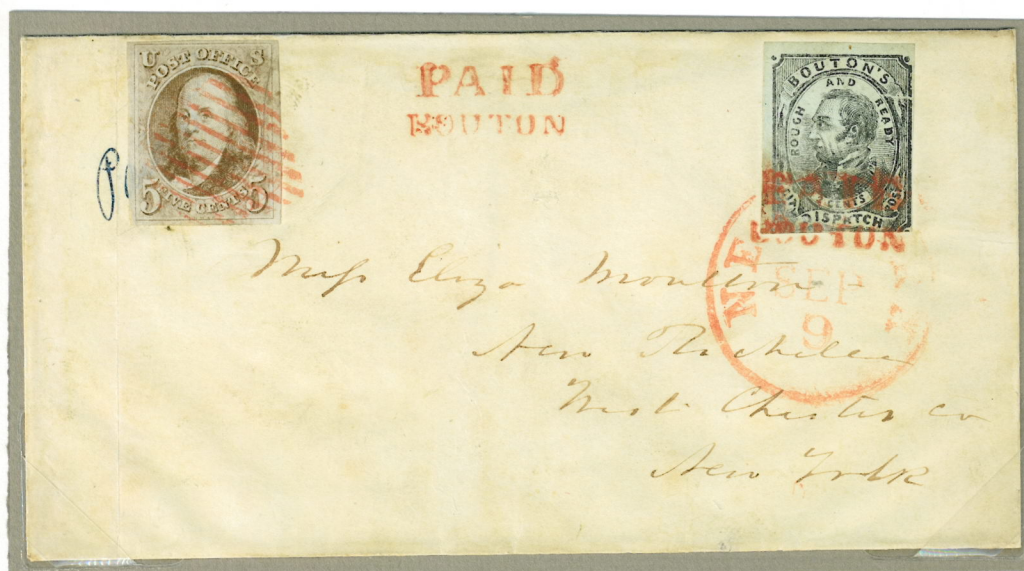 U S
POST OFFICE
FIVE CENTS
5 5
PAID
BOUTON
BOUTON'S
AND
ROUGH READY
CENTS
CITY DISPATCH POST
PAID
BOUTON
NEW
SEP
9
Miss Eliza Moulton
New Rochelle
West Chester Co
New York